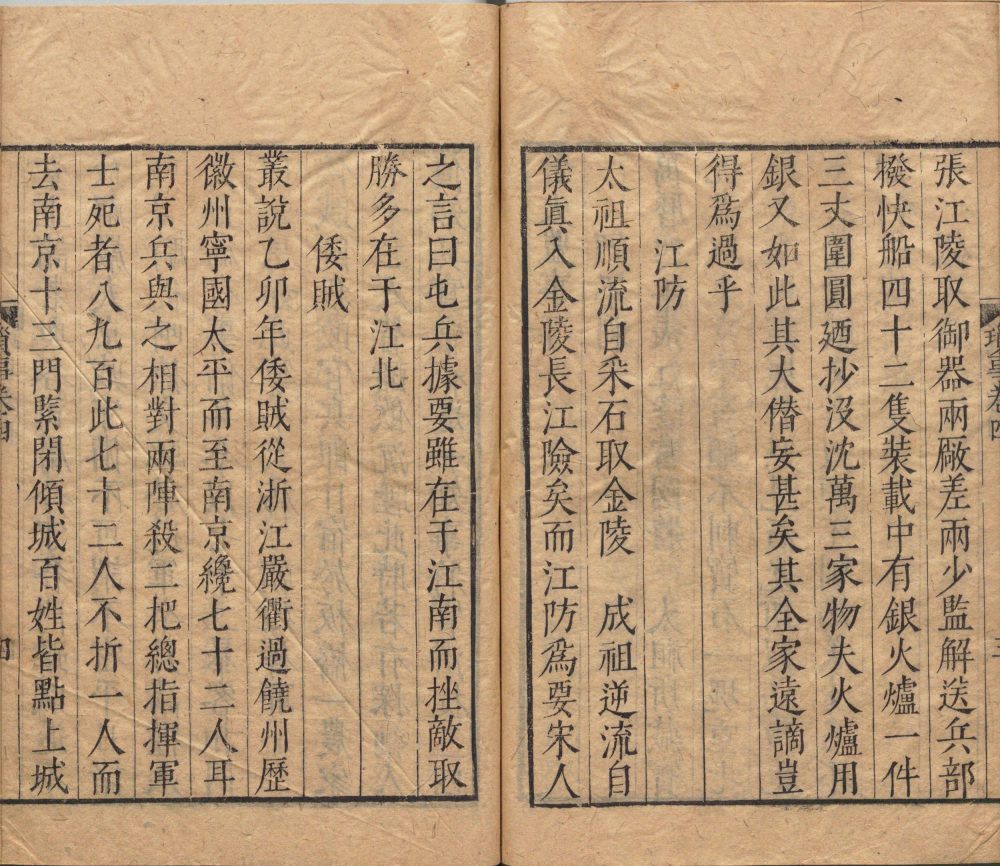 張江陵取御器兩厰差兩少監解送兵部
撥快船四十二隻裝載中有銀火爐一件
三丈圍圓廼抄沒沈萬三家物夫火爐用
銀又如此其大僭妄甚矣其全家遠謫豈
得爲過乎
江防
太祖順流自采石取金陵 成祖逆流自
儀眞入金陵長江險矣而江防爲要宋人
之言曰屯兵據要雖在于江南而挫敵取
勝多在于江北
倭賊
叢說乙卯年倭賊從浙江嚴衢過饒州歷
徽州寧國太平而至南京纔七十二人耳
南京兵與之相對兩陣殺二把總指揮軍
士死者八九百此七十二人不折一人而
去南京十三門緊閉傾城百姓皆點上城